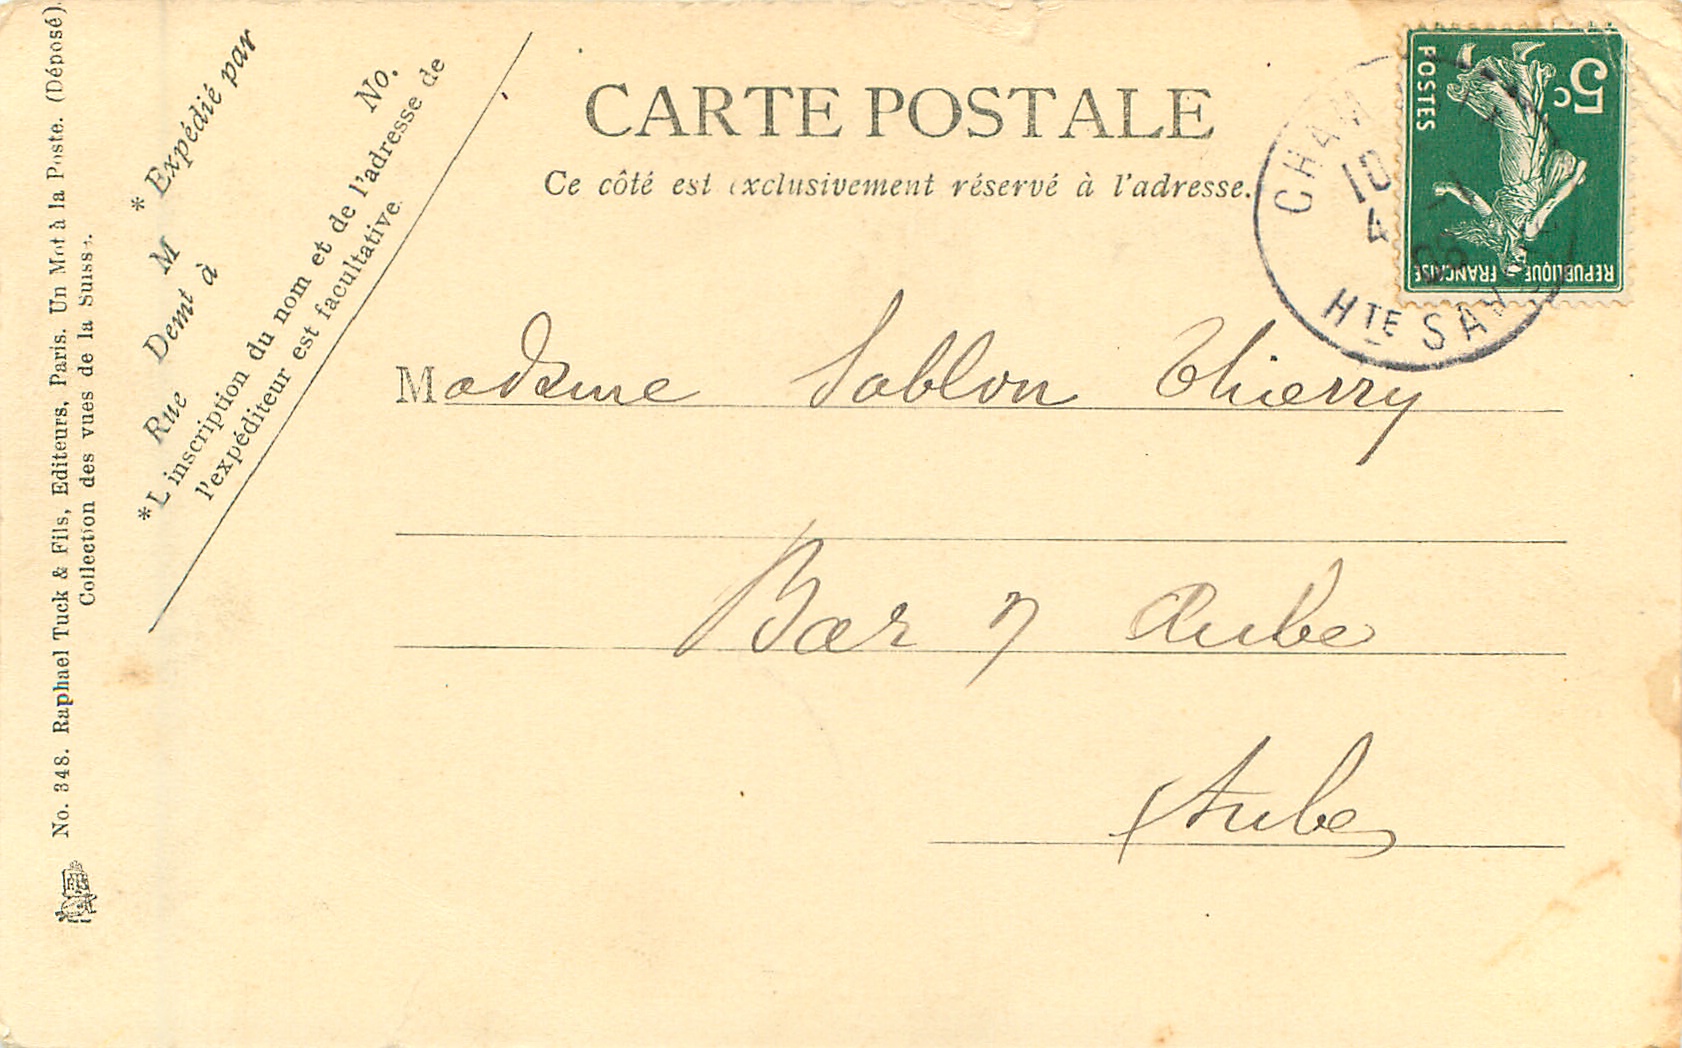 CARTE POSTALE
Ce côté est exclusivement réservé à l'adresse.
5c
POSTES
REPUBLIQUE FRANÇAISE
CHAM
10
4
08
HTE SAV
Madame Sablon Thierry
Bar s/ Aube
Aube
* Expédié par
M No.
Demt à
Rue
*L'inscription du nom et de l'adresse de
l'expéditeur est facultative.
No. 348. Raphael Tuck & Fils, Editeurs, Paris. Un Mot à la Poste. (Déposé).
Collection des vues de la Suisse.